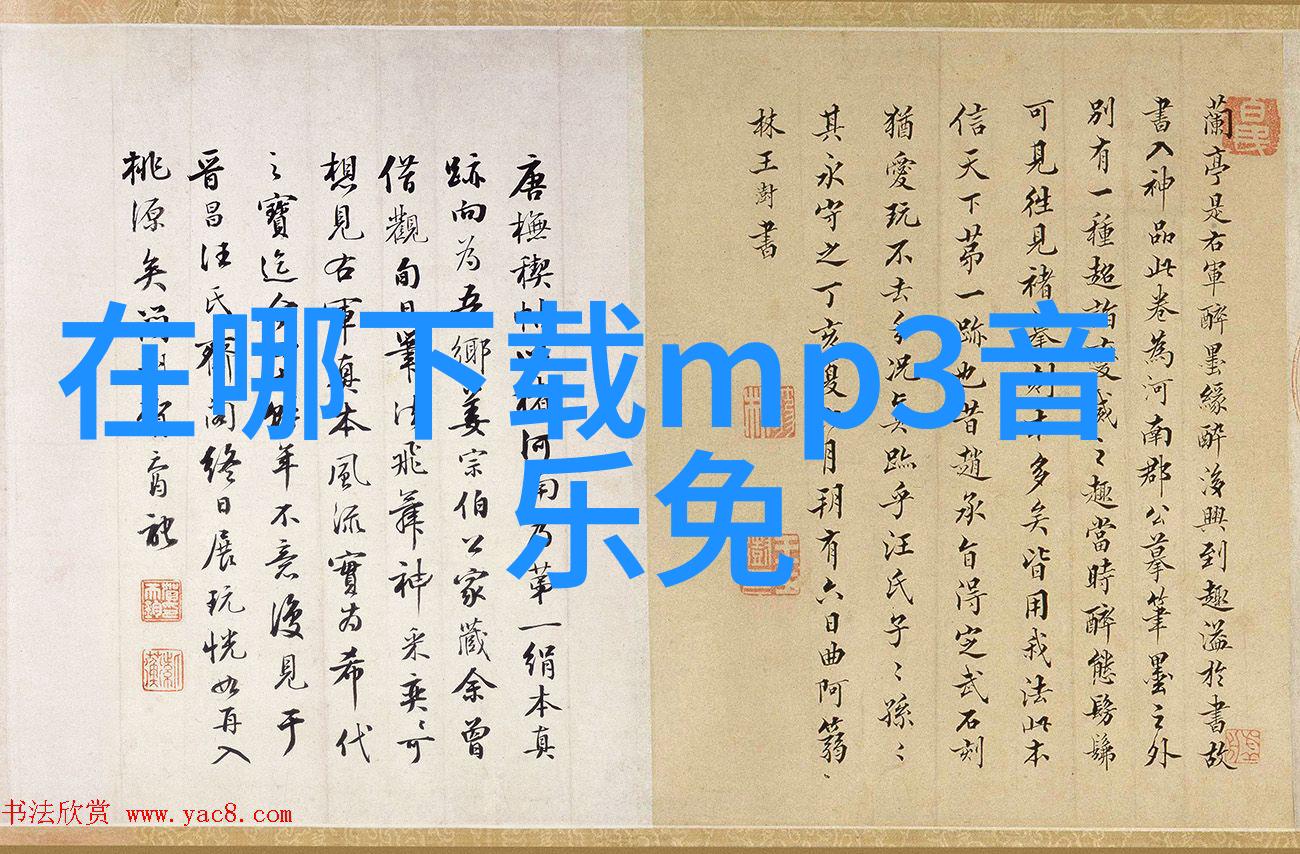 蘭亭是右軍醉墨緣醉後興到趣溢於書故
書入神品此卷為河南郡公摹筆墨之外
別有一種超詣之趣當時醉態髣髴
可見往見褚摹刻本多矣皆用我法此本
信天下第一跡也昔趙承旨得定武石刻
猶愛玩不去手況真跡乎汪氏子〻孫〻
其永守之丁亥夏月朔有六日曲阿蒻
林王澍書
唐橅禊帖褚河南乃第一絹本真
跡向為吾鄉姜宗伯公家藏余曾
借觀旬日筆法飛舞神采奕〻可
想見右軍真本風流實為希代
之寶迄年不意復見于
晉昌汪氏齋閣終日展玩恍如再入
桃源矣
在哪下载mp3音
乐免
书法欣赏 www.yac8.com